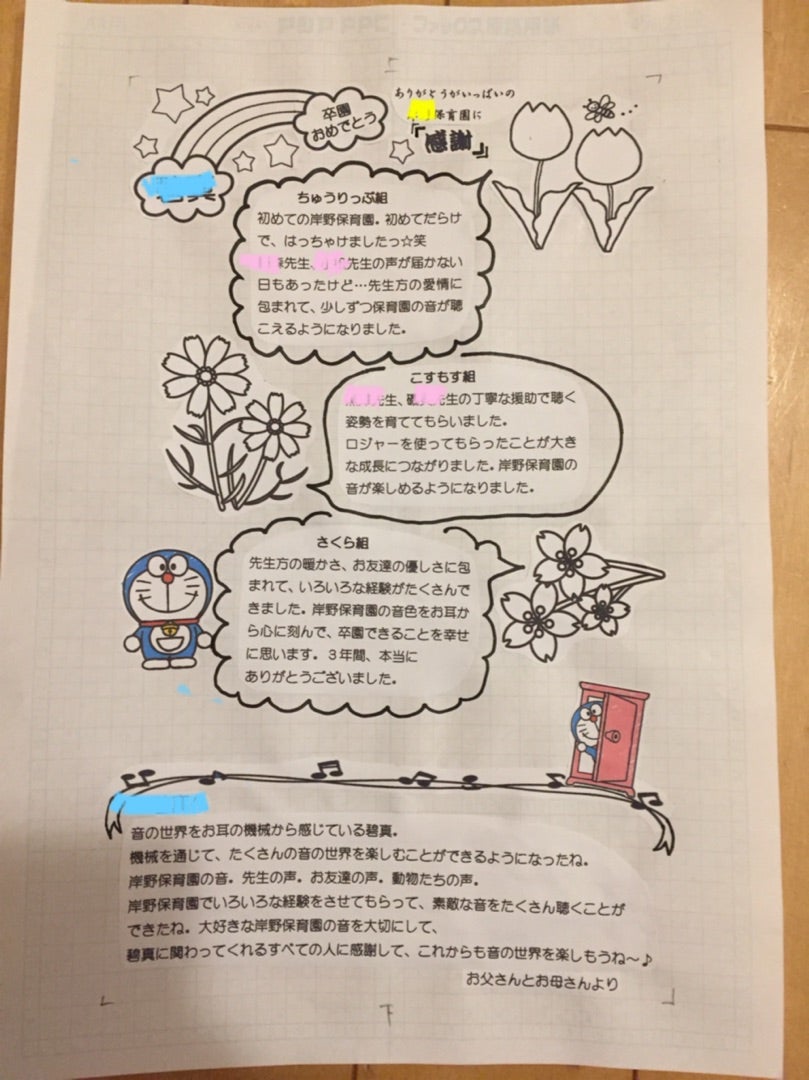 卒園
おめでとう
ありがとうがいっぱいの
保育園に
『感謝』
ちゅうりっぷ組
初めての岸野保育園。初めてだらけ
で、はっちゃけましたっ☆笑
先生、先生の声が届かない
日もあったけど…先生方の愛情に
包まれて、少しずつ保育園の音が聴
こえるようになりました。
こすもす組
先生、先生の丁寧な援助で聴く
姿勢を育ててもらいました。
ロジャーを使ってもらったことが大き
な成長につながりました。岸野保育園の
音が楽しめるようになりました。
さくら組
先生方の暖かさ、お友達の優しさに包
まれて、いろいろな経験がたくさんで
きました。岸野保育園の音色をお耳か
ら心に刻んで、卒園できることを幸せ
に思います。３年間、本当に
ありがとうございました。
音の世界をお耳の機械から感じている碧真。
機械を通じて、たくさんの音の世界を楽しむことができるようになったね。
岸野保育園の音。先生の声。お友達の声。動物たちの声。
岸野保育園でいろいろな経験をさせてもらって、素敵な音をたくさん聴くことが
できたね。大好きな岸野保育園の音を大切にして、
碧真に関わってくれるすべての人に感謝して、これからも音の世界を楽しもうね～♪
お父さんとお母さんより